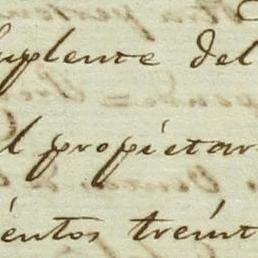 suplente del
l propietar
ientos treint